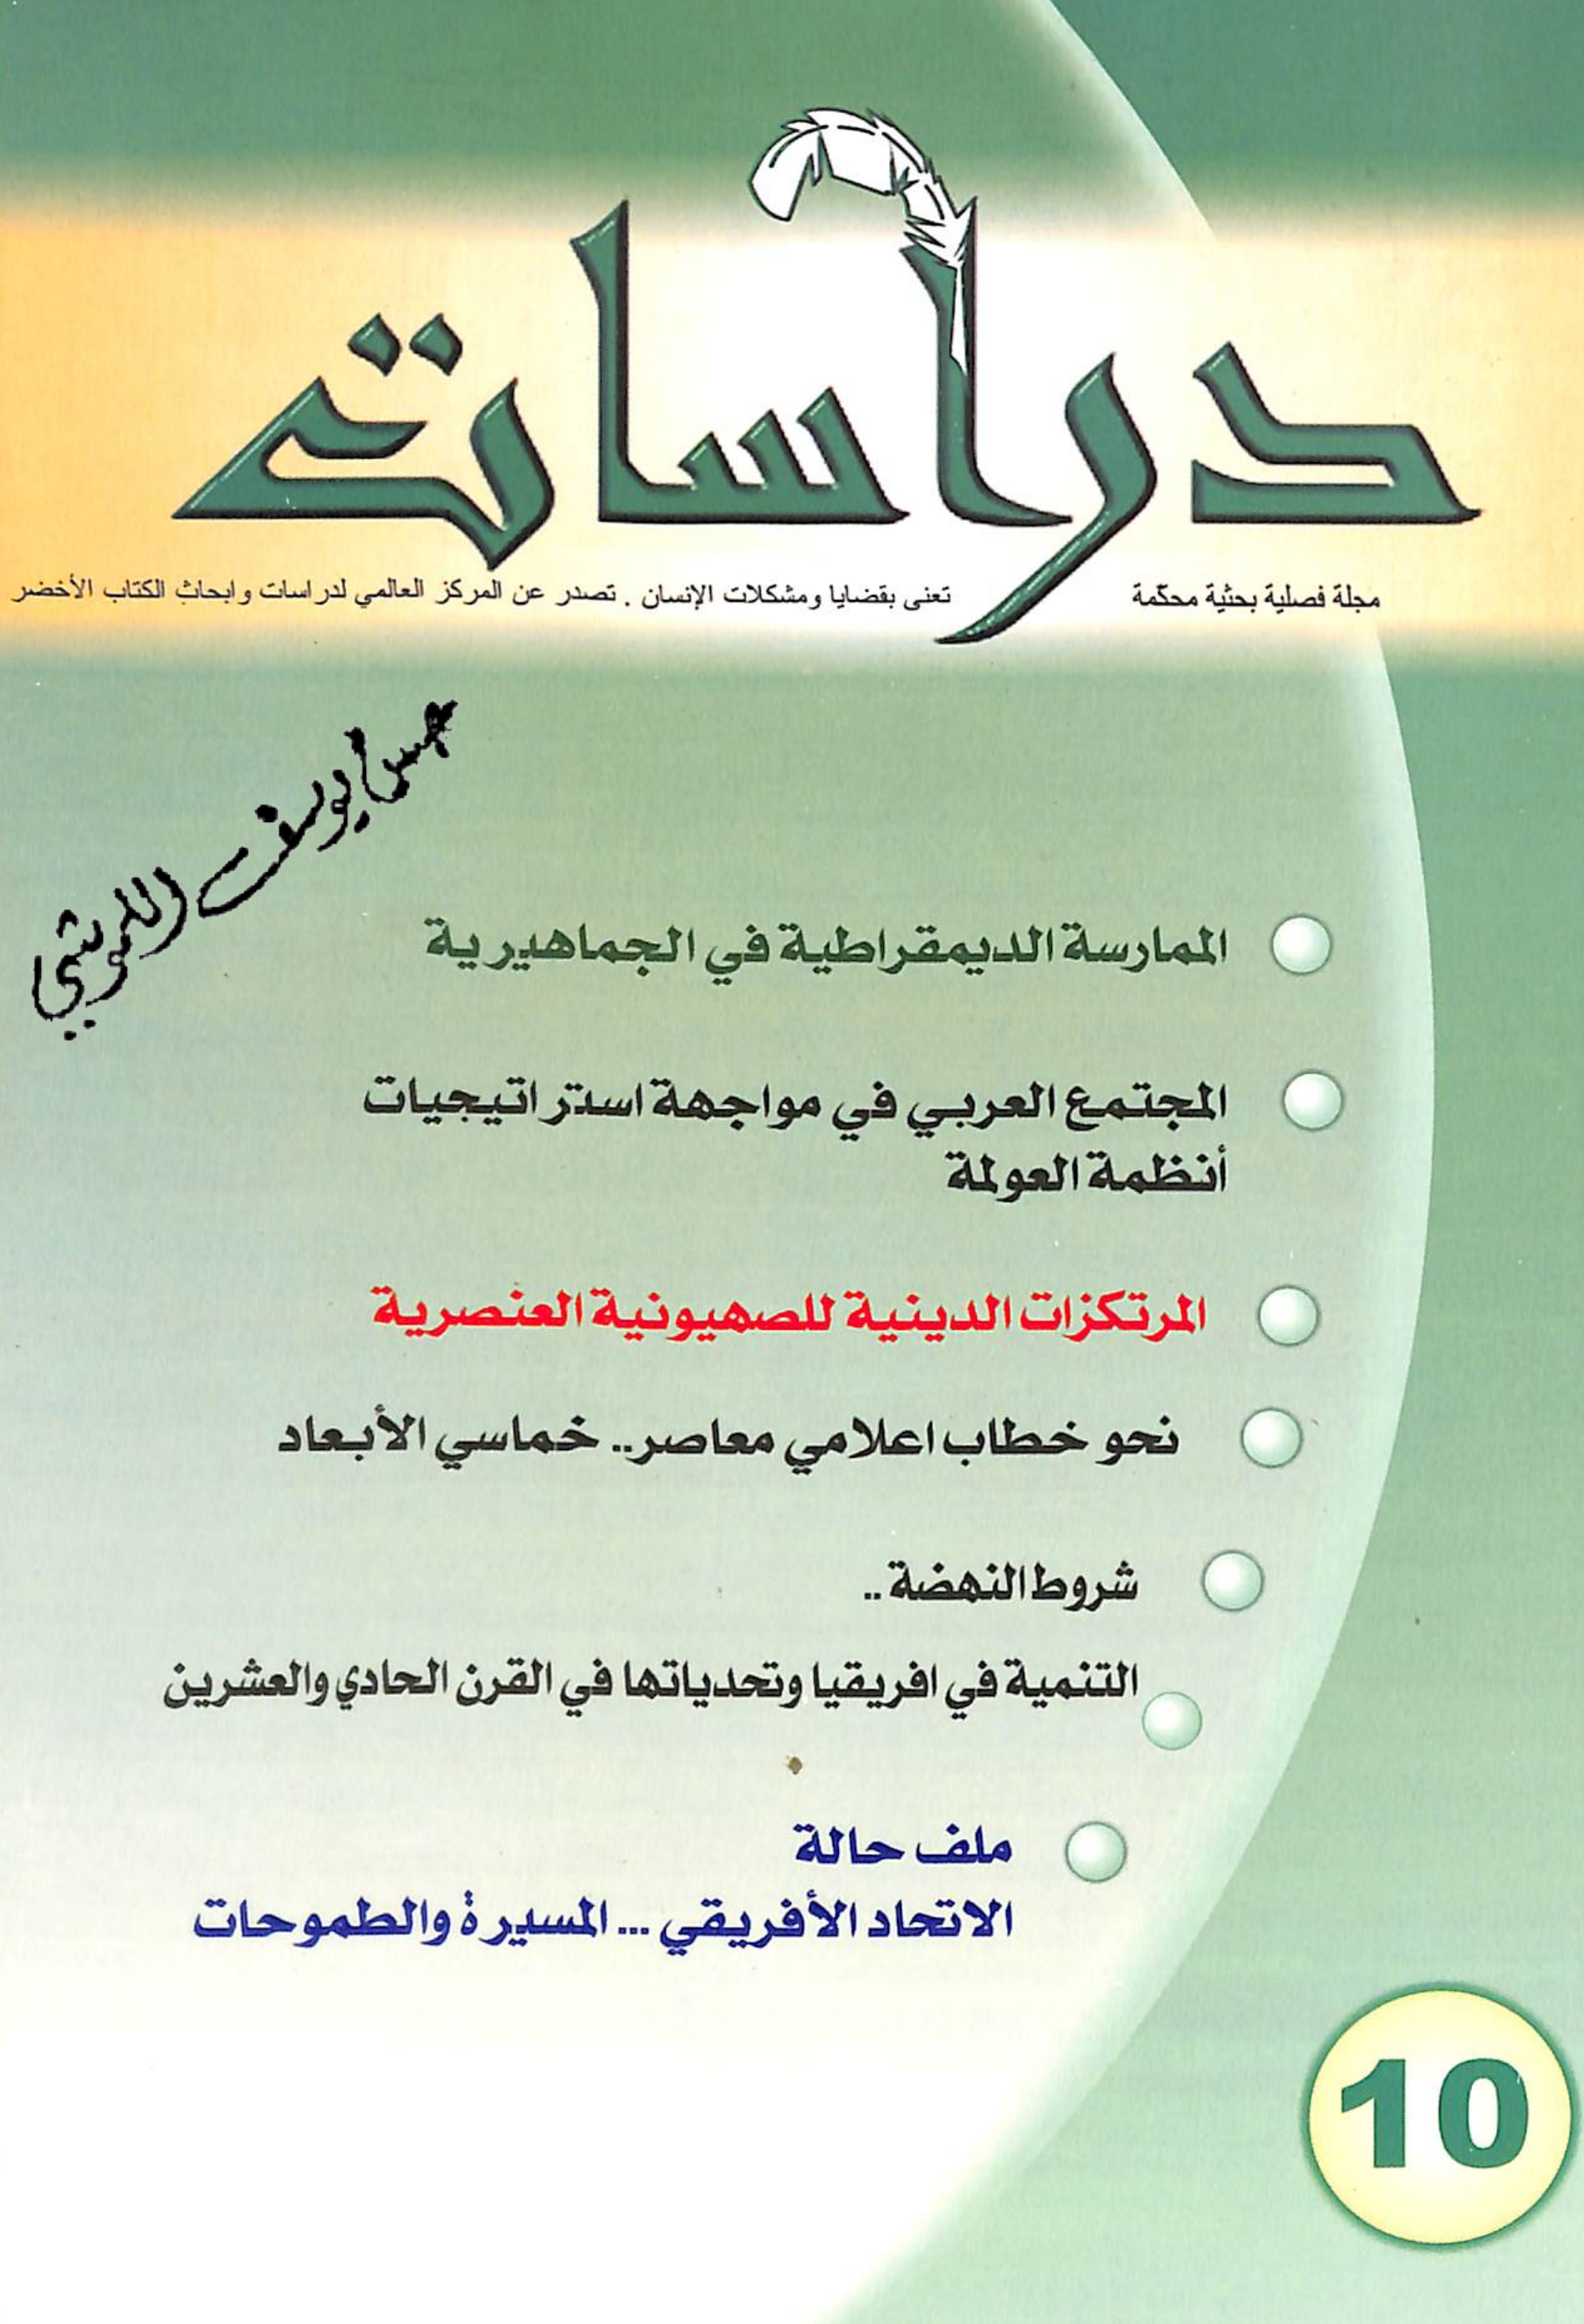 دراسات
مجلة فصلية بحثية محكّمة
تعنى بقضايا ومشكلات الإنسان . تصدر عن المركز العالمي لدراسات وابحاث الكتاب الأخضر
يوسف
الممارسة الديمقراطية في الجماهيرية
المجتمع العربي في مواجهة استراتيجيات
أنظمة العولمة
المرتكزات الدينية للصهيونية العنصرية
نحو خطاب اعلامي معاصر.. خماسي الأبعاد
شروط النهضة ..
التنمية في افريقيا وتحدياتها في القرن الحادي والعشرين
ملف حالة
الاتحاد الأفريقي ... المسيرة والطموحات
10